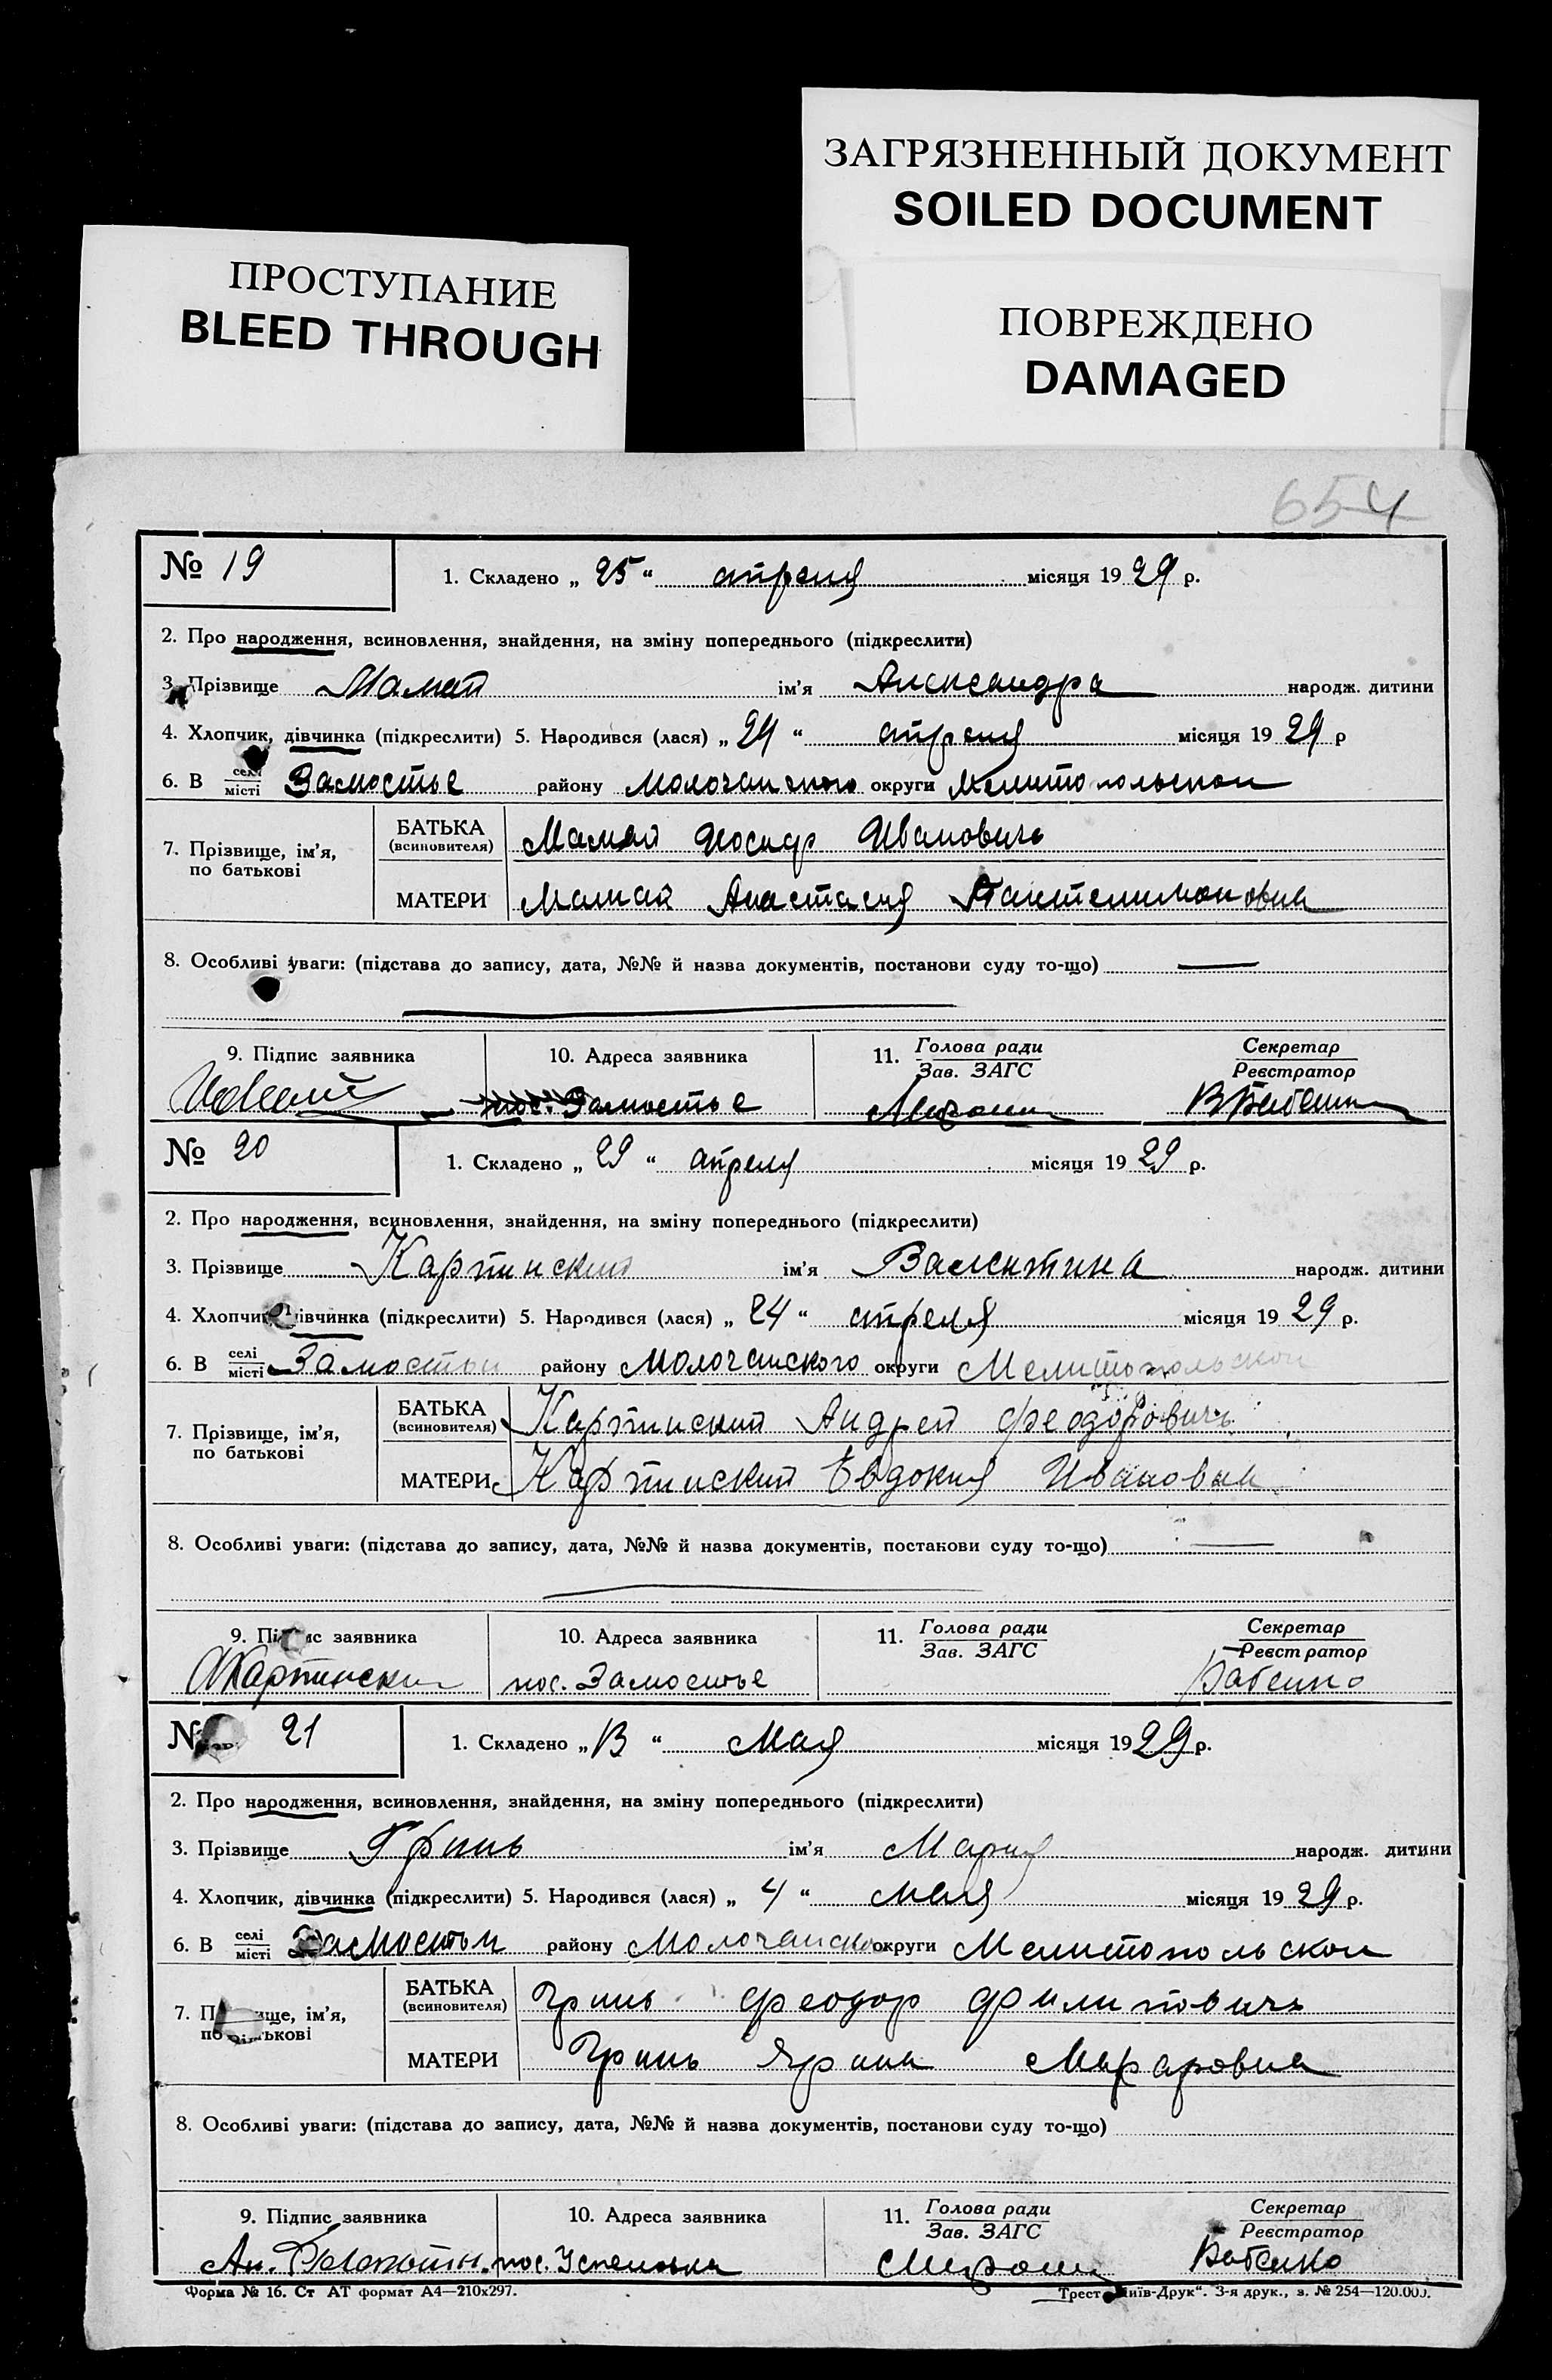 ЗАГРЯЗНЕННЫЙ ДОКУМЕНТ
SOILED DOCUMENT
ПРОСТУПАНИЕ
BLEED THROUGH
ПОВРЕЖДЕНО
DAMAGED
654
№ 19 1. Складено „ 25 “ апреля місяця 1929 р.
2. Про народження, всиновлення, знайдення, на зміну попереднього (підкреслити)
3. Прізвище Мамай ім'я Александра народж. дитини
4. Хлопчик, дівчинка (підкреслити) 5. Народився (лася) „ 24 “ апреля місяця 1929 р
6. В селі місті Замостье району Молочанского округи Мелитопольской
7. Прізвище, ім'я, по батькові
БАТЬКА (всиновителя) Мамай Иосиф Ивановичь
МАТЕРИ Мамай Анастасия Пантелимоновна
8. Особливі уваги: (підстава до запису, дата, №№ й назва документів, постанови суду то-що)
9. Підпис заявника 10. Адреса заявника 11. Голова ради Зав. ЗАГС Секретар Реєстратор
Замостье
№ 20 1. Складено „ 29 “ апреля місяця 1929 р.
2. Про народження, всиновлення, знайдення, на зміну попереднього (підкреслити)
3. Прізвище Картинский ім'я Валентина народж. дитини
4. Хлопчик, дівчинка (підкреслити) 5. Народився (лася) „ 24 “ апреля місяця 1929 р.
6. В селі місті Замостьи району Молочанского округи Мелитопольской
7. Прізвище, ім'я, по батькові
БАТЬКА (всиновителя) Картинский Андрей Феодоровичь
МАТЕРИ Картинский Евдокия Ивановна
8. Особливі уваги: (підстава до запису, дата, №№ й назва документів, постанови суду то-що)
9. Підпис заявника 10. Адреса заявника 11. Голова ради Зав. ЗАГС Секретар Реєстратор
АКартинский пос. Замостье Бабенко
№ 21 1. Складено „ “ Мая місяця 1929 р.
2. Про народження, всиновлення, знайдення, на зміну попереднього (підкреслити)
3. Прізвище Гринь ім'я Мария народж. дитини
4. Хлопчик, дівчинка (підкреслити) 5. Народився (лася) „ 4 “ мая місяця 1929 р.
6. В селі місті Замостьи району Молочанско округи Мелитопольской
7. Прізвище, ім'я, по батькові
БАТЬКА (всиновителя) Гринь Феодор Филиповичь
МАТЕРИ Гринь Ярина
8. Особливі уваги: (підстава до запису, дата, №№ й назва документів, постанови суду то-що)
9. Підпис заявника 10. Адреса заявника 11. Голова ради Зав. ЗАГС Секретар Реєстратор
Ан. пос. Успеновка Бабенко
Форма № 16. Ст АТ формат А4—210х297. Трест „Київ-Друк“. 3-я друк., з. № 254—120.000.